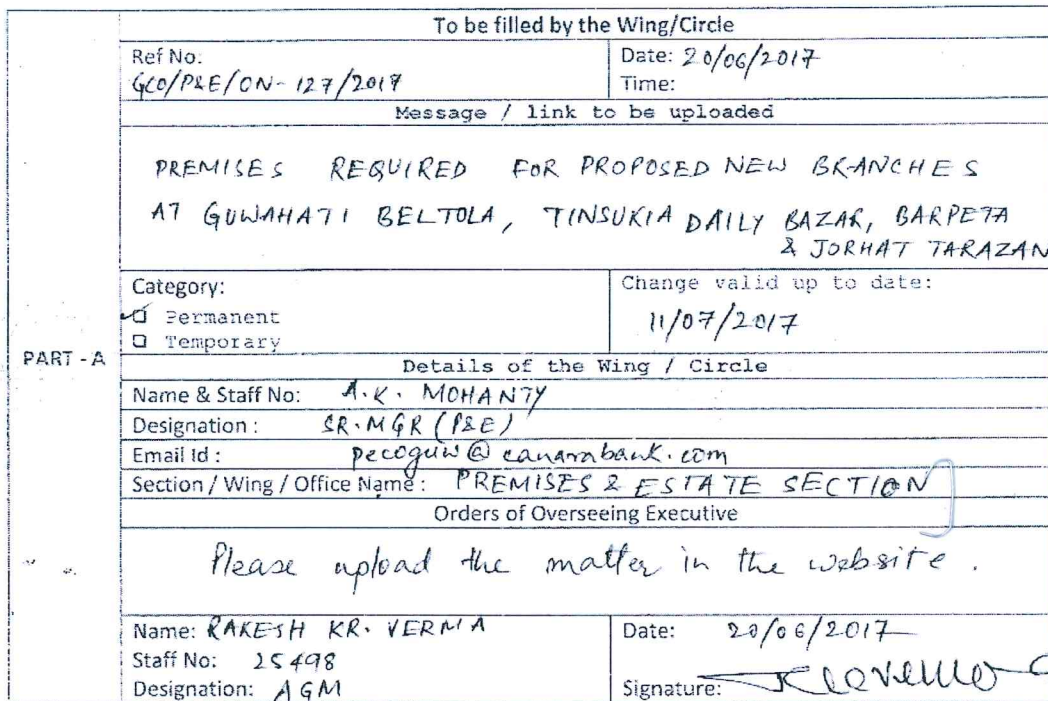 To be filled by the Wing/Circle
Ref No:
GCO/P&E/ON-127/2017
Date: 20/06/2017
Time:
Message / link to be uploaded
PREMISES REQUIRED FOR PROPOSED NEW BRANCHES
AT GUWAHATI BELTOLA, TINSUKIA DAILY BAZAR, BARPETA
& JORHAT TARAZAN
Category:
Permanent
Temporary
Change valid up to date:
11/07/2017
PART - A
Details of the Wing / Circle
Name & Staff No: A.K. MOHANTY
Designation : SR.MGR (P&E)
Email Id : pecoguw@canarabank.com
Section / Wing / Office Name : PREMISES & ESTATE SECTION
Orders of Overseeing Executive
Please upload the matter in the website.
Name: RAKESH KR. VERMA
Staff No: 25498
Designation: AGM
Date: 20/06/2017
Signature: